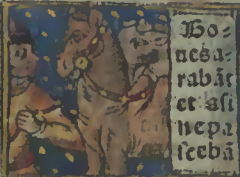 Bo-
uesa-
rabāt
et asi
nepa
scebā